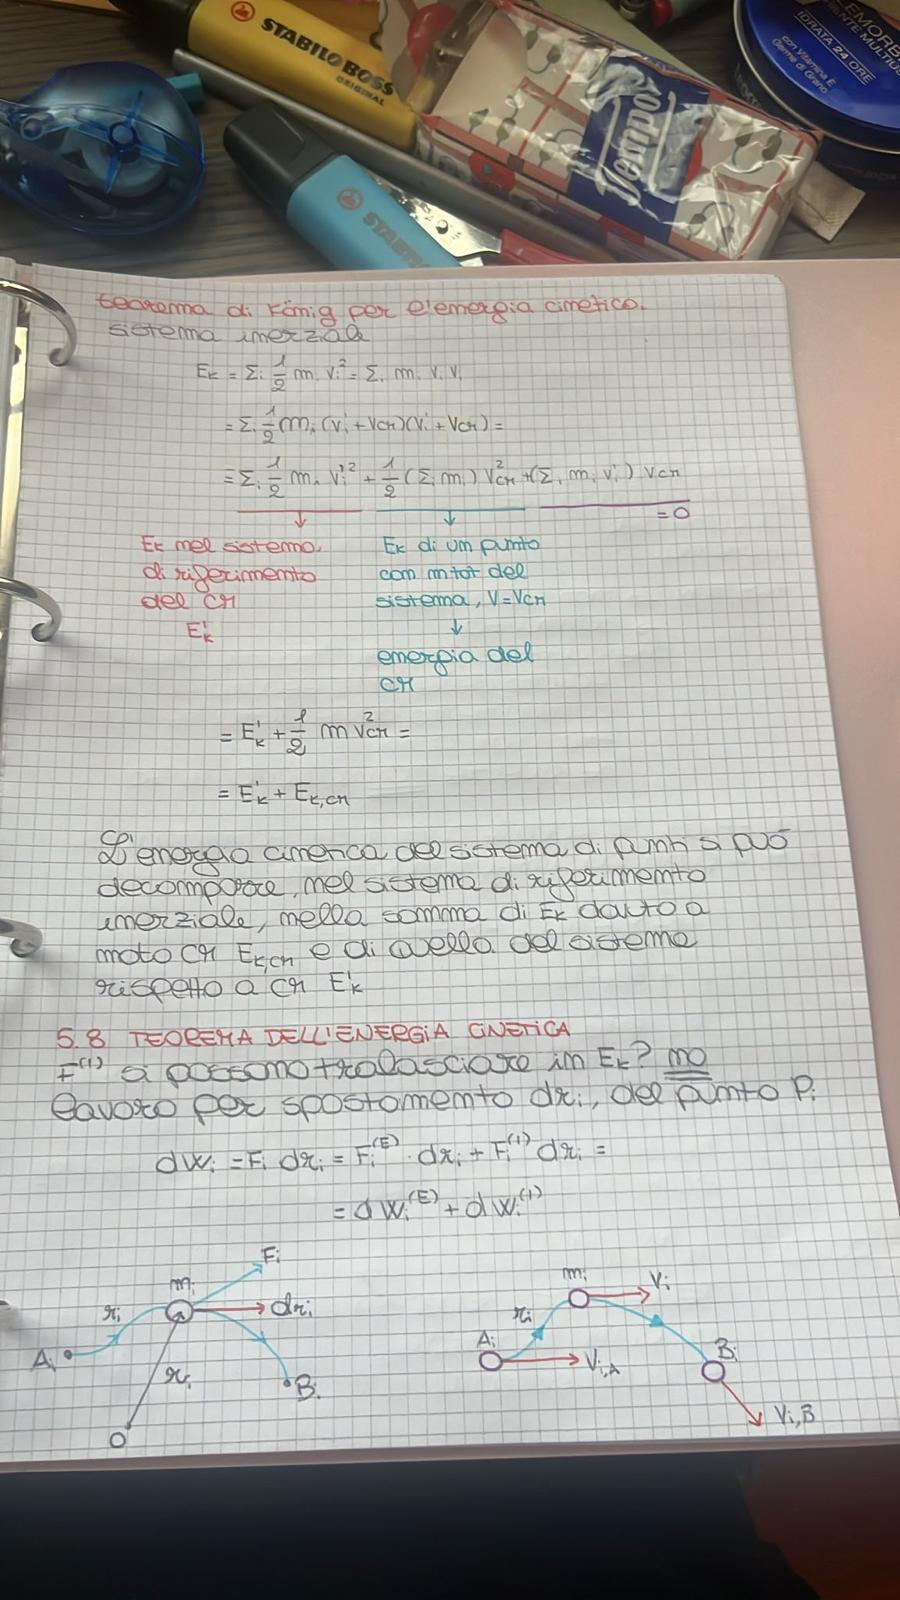 STABILO BOSS
ORIGINAL
STABI
Tempo
IDRATA 24 ORE
con Vitamina E
Germe di Grano
teorema di König per l'energia cinetica.
sistema inerziale
Ek = Σi 1/2 mi vi² = Σi mi vi vi
= Σi 1/2 (mi (vi' + vCM)(vi' + vCM) =
= Σi 1/2 mi vi'² + 1/2 (Σi mi) vCM² + (Σi mi vi') vCM
= 0
Ek nel sistema
di riferimento
del CM
E'k
Ek di un punto
con m tot del
sistema, V=VCM
↓
energia del
CM
= E'k + 1/2 m vCM² =
= E'k + Ek,CM
L'energia cinetica del sistema di punti si può
decomporre, nel sistema di riferimento
inerziale, nella somma di Ek dovuto a
moto CM Ek,CM e di quella del sistema
rispetto a CM E'k
5.8 TEOREMA DELL'ENERGIA CINETICA
F(I) si possono tralasciare in Ek? no
lavoro per spostamento dri, del punto Pi
dWi = Fi dri = Fi(E) · dri + Fi(I) dri =
= dWi(E) + dWi(I)
Fi
mi
dri
ri
Ai
ri
Bi
O
mi
Vi
ri
Ai
Vi,A
Bi
Vi,B